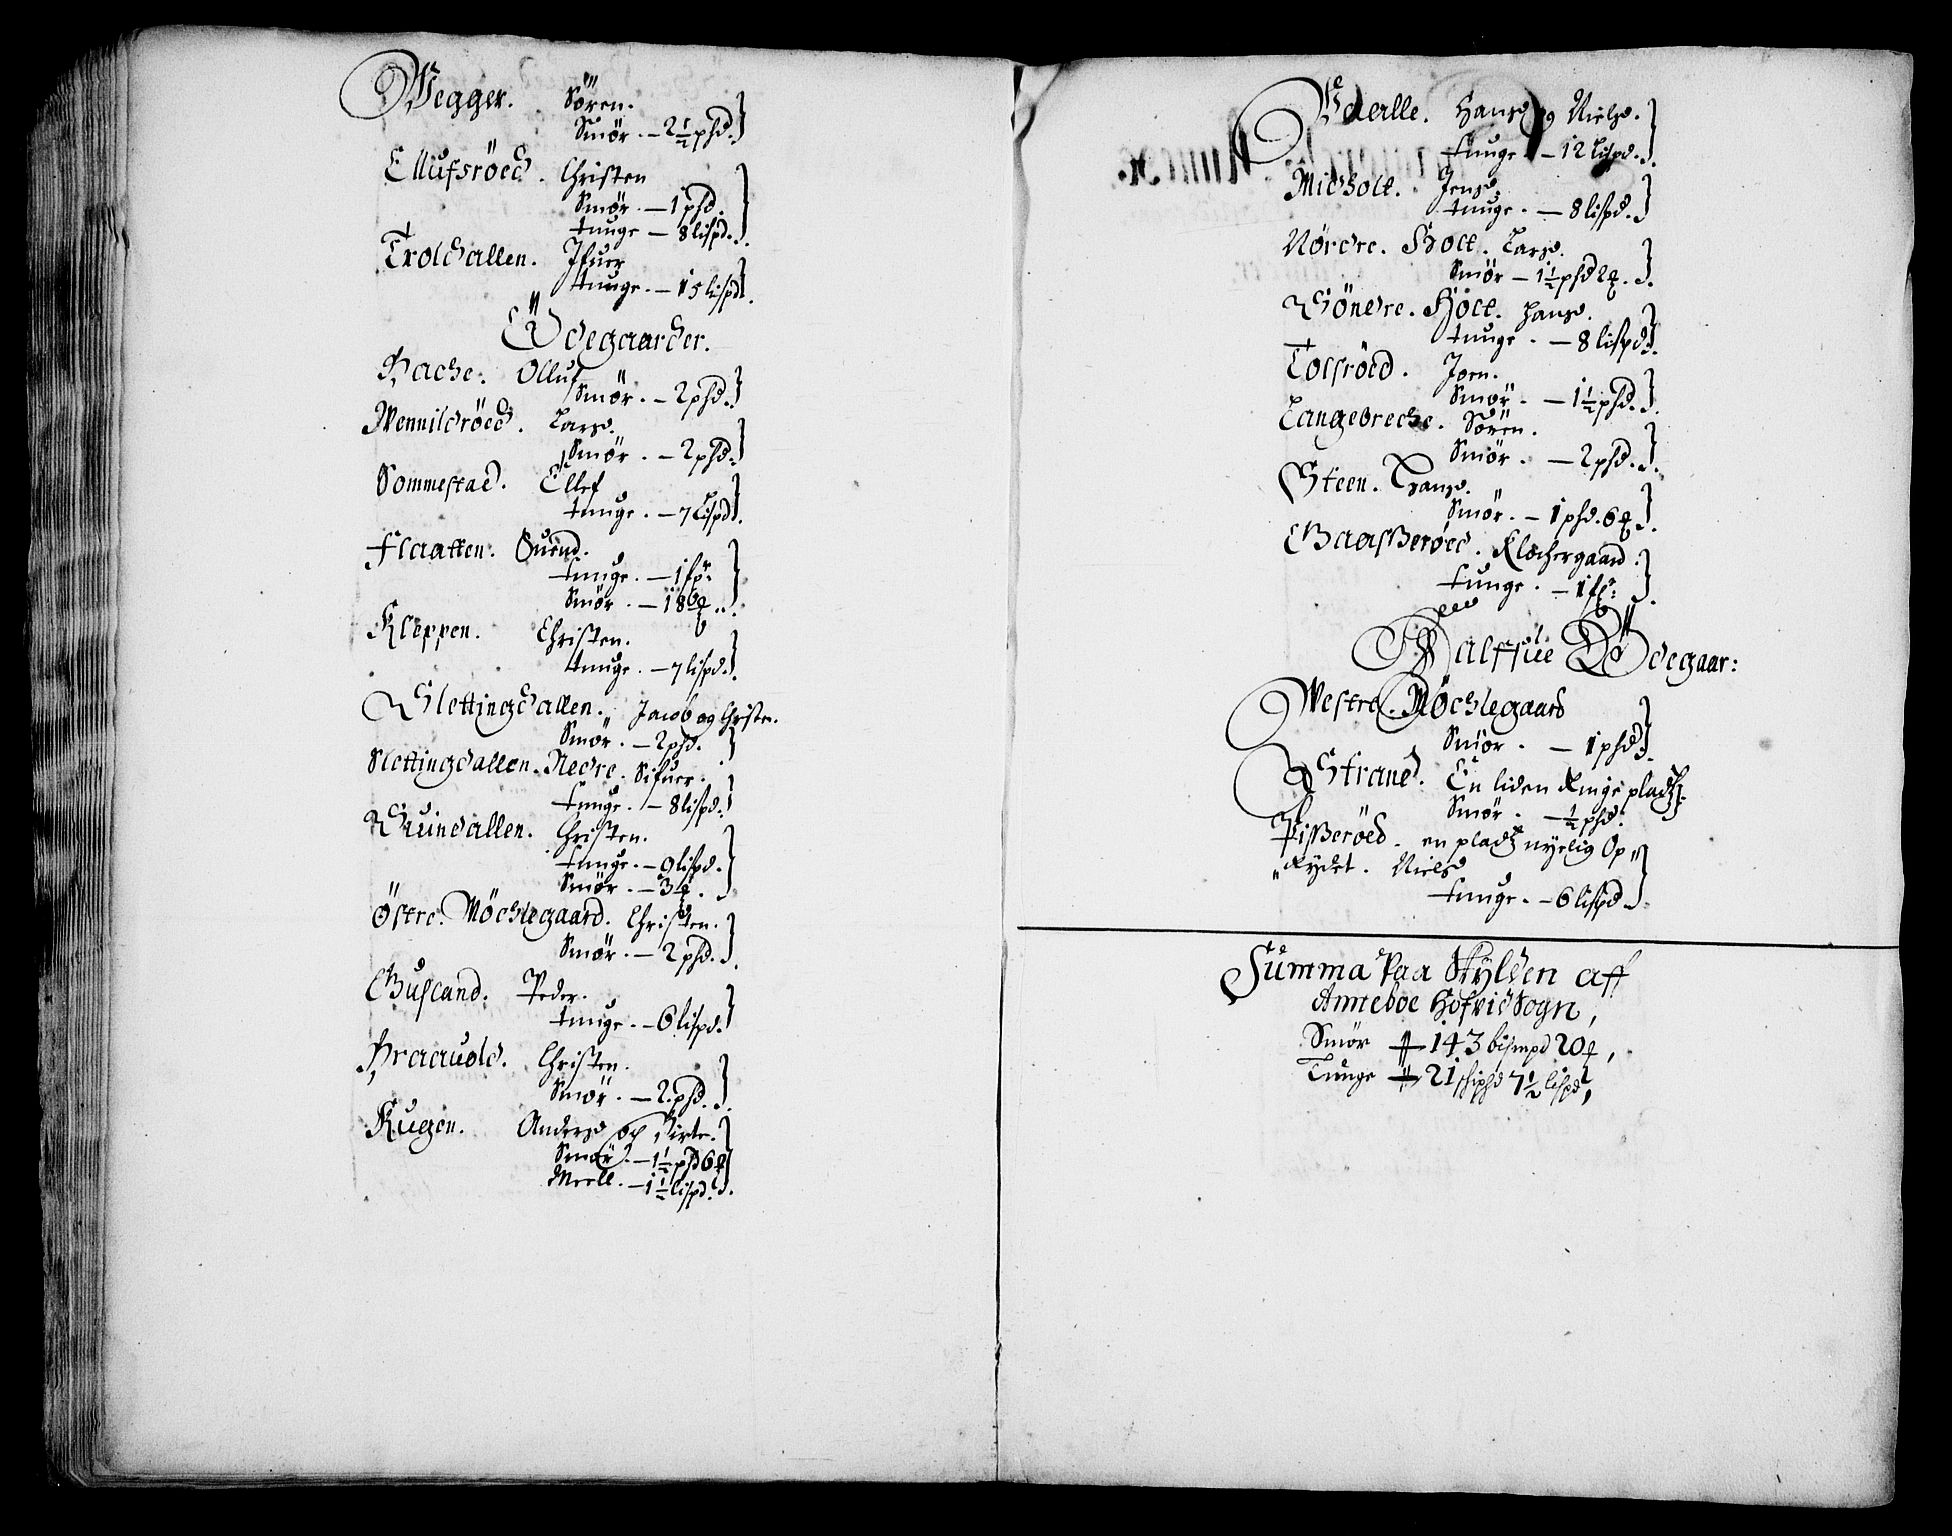 Wegger. Sören.
Smör. — 2½ pħd.
Ellufsröed. Christen
Smör. — 1 pħd.
tunge — 8 lispd.
Troldallen. Ifuer
tunge. — 15 lispd.
Ödegaarder.
Bache. Olluf
Smör. — 2 pħd.
Wennildröed. Larss.
Smör. — 2 pħd.
Sommestad. Ellef
tunge. — 7 Lispd.
Flaatten. Suend.
tunge. — 1 sp:
Smör. — 18
Kleppen. Christen.
tunge. — 7 lispd.
Slettingdallen. Jacob og Christen.
Smör. — 2 pħd.
Slettingdallen. Nedre. Sifuer.
tunge. — 8 lispd.
Suindallen. Christen.
tunge. — 9 lispd.
Smör. — 3
Östre. Möchlegaard. Christen.
Smör. — 2 pħd.
Gusland. Peder.
tunge. — 6 lispd.
Braauold. Christen.
Smör. — 2 pħd.
Rugen. Anderss och Kirte.
Smör. — 1½ pħd 6
Meell. — 1½ lispd.
Haslle. Hanss og Nielss.
tunge — 12 lispd.
Midholt. Jenss
tunge. — 8 lispd.
Nördre. Holt. Larss.
Smör — 1½ pħd 2
Söndre. Holt. Hanss.
tunge. — 8 lispd.
Tolsröed. Jorn.
Smör. — 1½ pħd.
Langebreche. Sören.
Smör. — 2 pħd.
Steen. Hanss.
Smör. — 1 pħd. 6
Baasseröed. Klochergaard.
tunge. — 1 sp:
Halffue Ödegaar:
Westre. Möchlegaard
Smör. — 1 pħd
Strand. En liden Ringe pladtz.
Smör. — ½ pħd.
Pisseröed. en pladtz nyelig Op
Rydet. Nielss
tunge. — 6 lispd
Summa Paa Skylden aff
Anneboe Hofvidsogn,
Smör — 143 bismpd 20,
Tunge — 21 skipħd 7½ lispd,